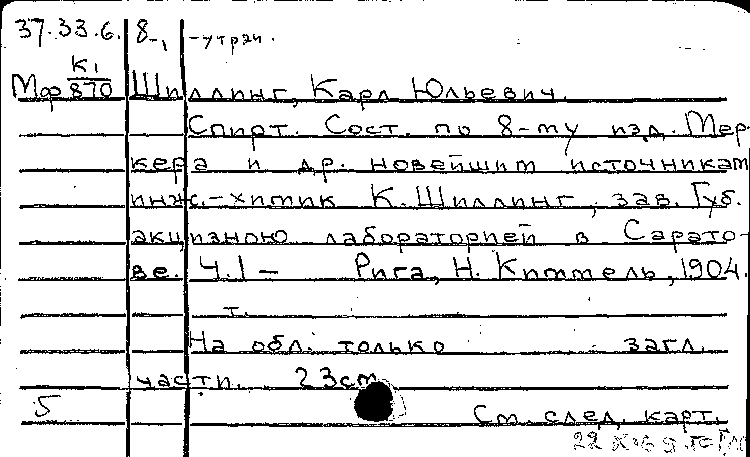 37.33.6. 8-, -утрач.
Мф К1/870 Шиллинг, Карл Юльевич.
Спирт. Сост. по 8-му изд. Мер-
кера и др. новейшим источникам
инж.-химик К. Шиллинг, зав. Губ.
акцизною лабораторией в Сарато-
ве. Ч.1 – Рига, Н. Киммель, 1904.
т.
На обл. только загл.
части. 23см
5 См. след. карт.